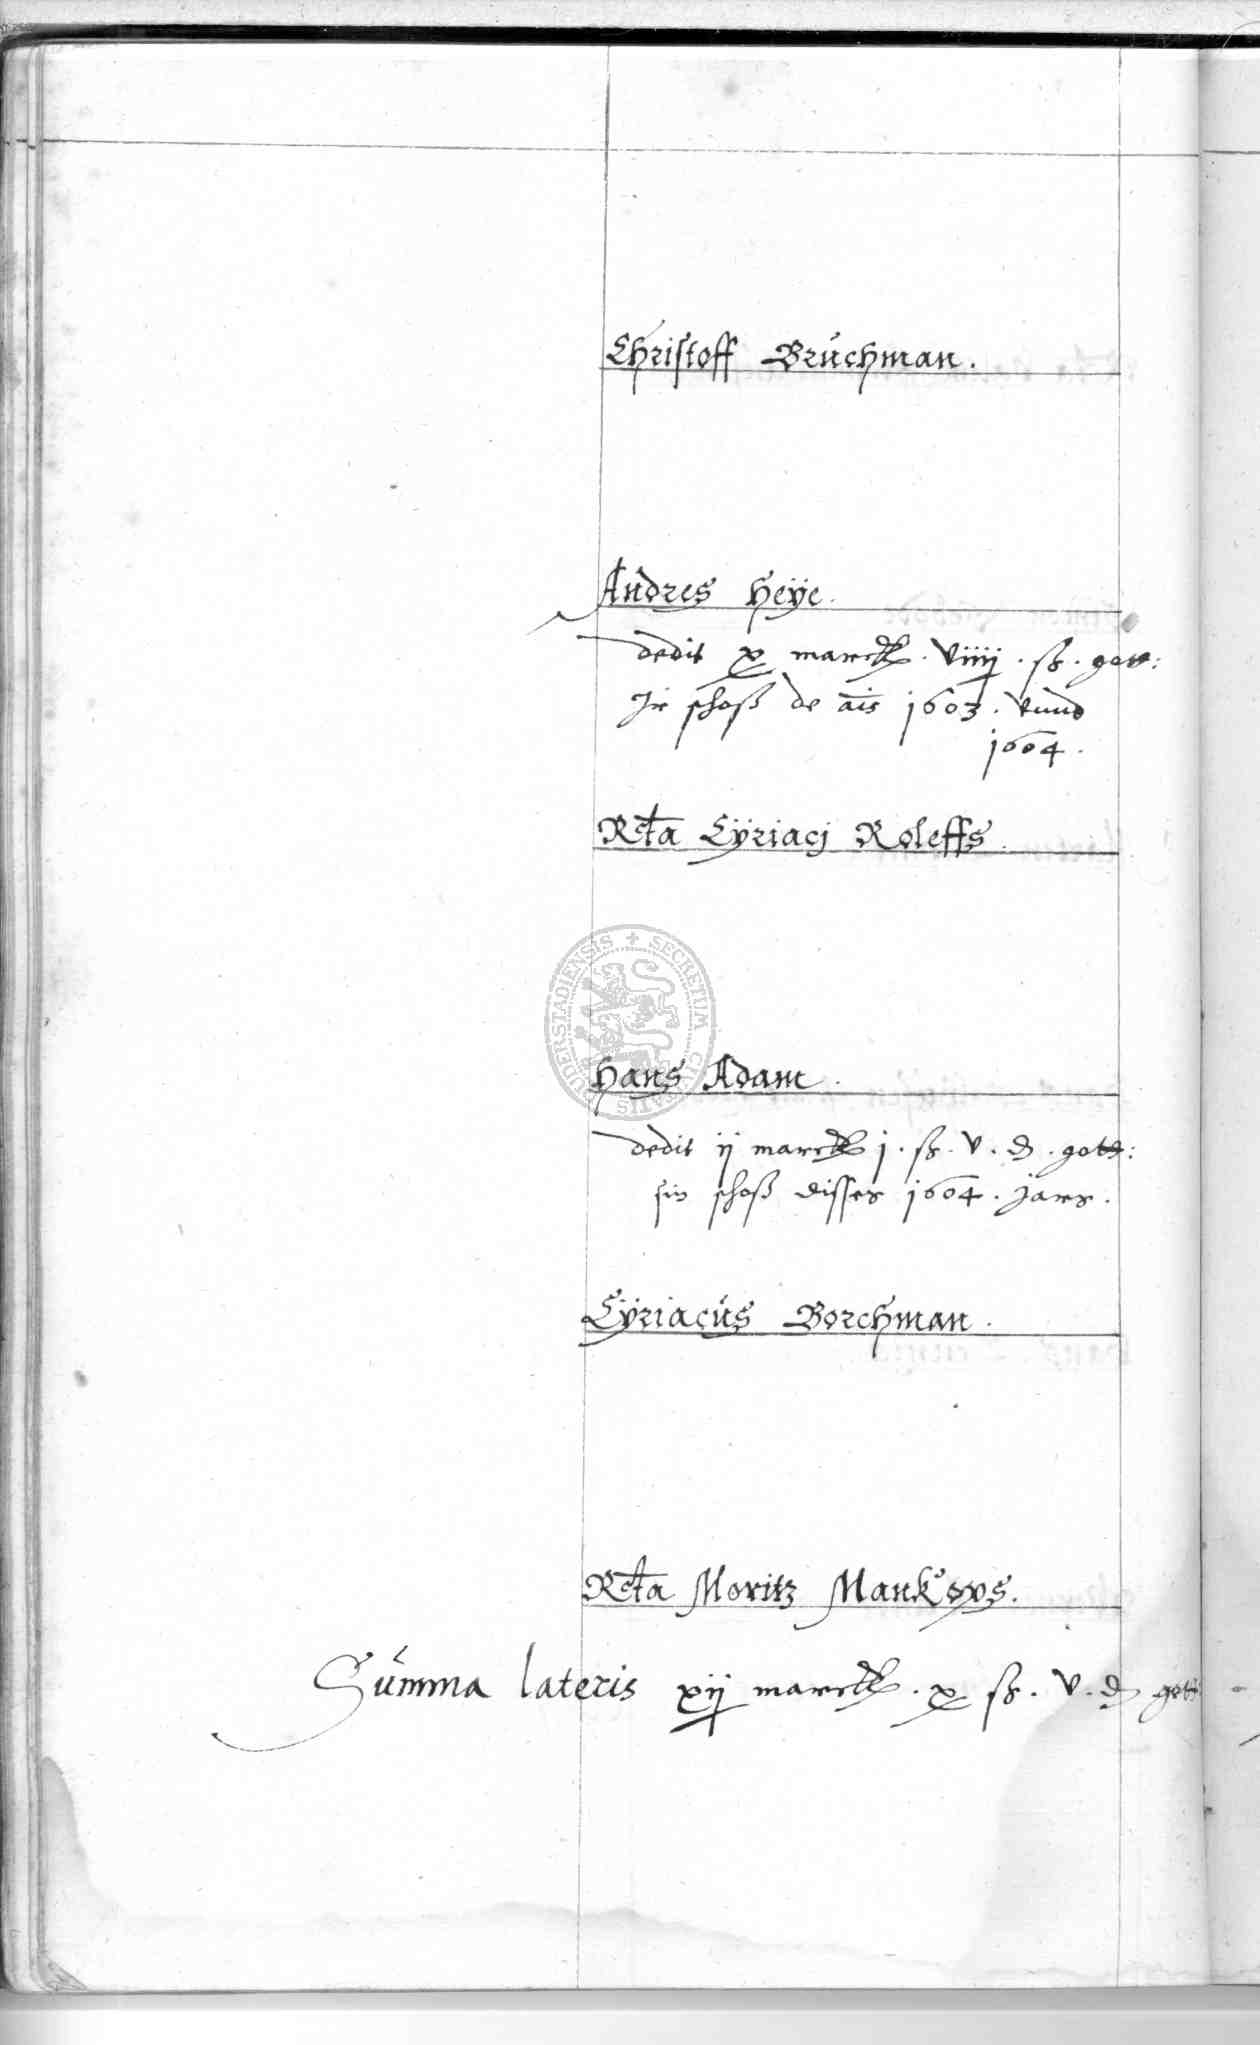 Christoff Brúchman.
Andres Heÿe.
dedit x marck. viiij. ß. gott:
Ir schoß de ais 1603. vnnd
1604.
Rcta Cÿriacj Roleffs.
SECRETUM CIVITATIS DUDERSTADIENSIS
Hans Adam.
dedit ij marck j. ß. v. d. gott:
sin schoß disses 1604. Jars.
Cÿriacús Borchman.
Rcta Moritz Mankops.
Súmma lateris xij marck. x ß. v. d gott